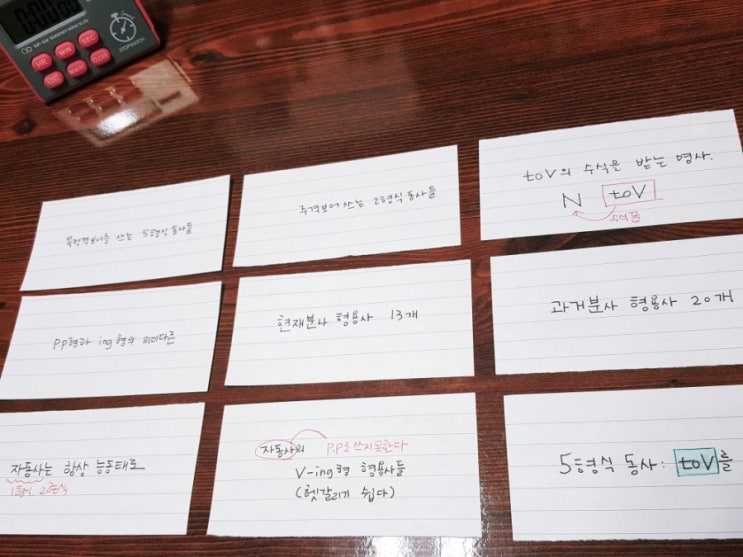 HR
MIN
SEC
STOPWATCH
목적격보어를 쓰는 5형식 동사들
주격보어 쓰는 2형식 동사들
toV의 수식을 받는 명사.
N toV
수식
PP형과 ing형의 의미다른
현재분사 형용사 13개
과거분사 형용사 20개
자동사는 항상 능동태로
1형식 2형식
자동사의 P.P로 쓰지못한다
V-ing형 형용사들
(헷갈리기 쉽다)
5형식 동사: toV를